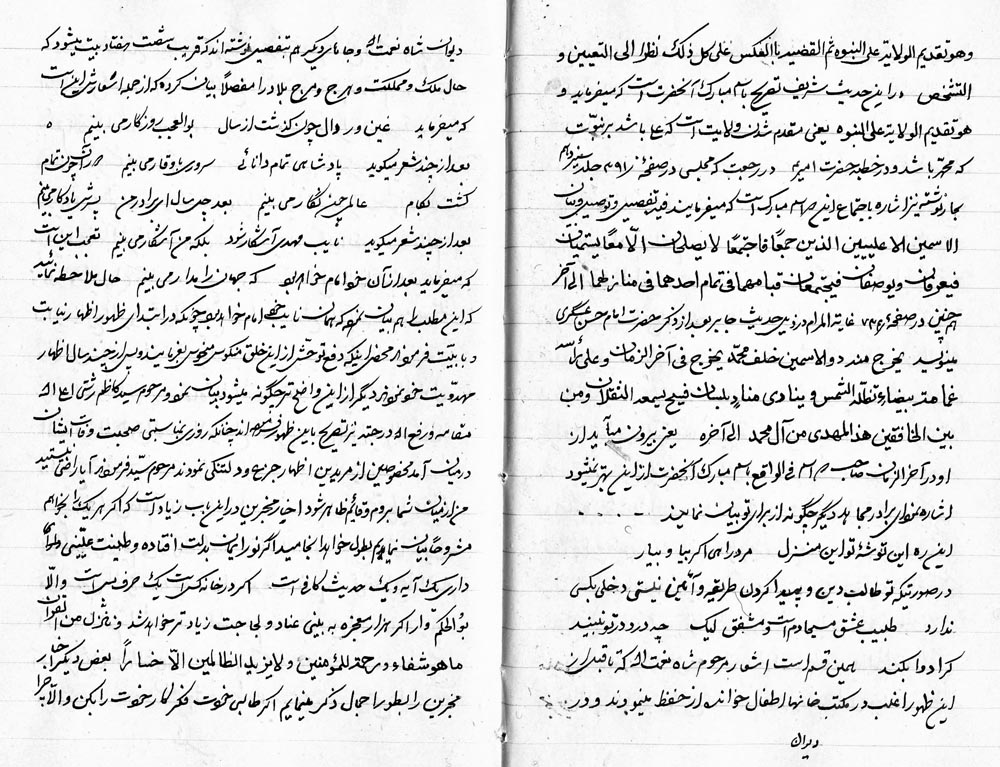 وهو تقدیم الولایة علی النبوه ثم القضیه بالعکس علی کل ذلک نظرا الی التعیین و
التشخص و در این حدیث شریف تصریح باسم مبارک آنحضرت است که میفرماید و
هو تقدیم الولایة علی النبوه یعنی مقدم شدن ولایت است که علی باشد بر نبوت
که محمد باشد و در خطبه حضرت امیر در رجعت که مجلسی در صفحه جلد سیزدهم
بحار نوشته نیز اشاره باجتماع این اسم مبارک است که میفرمایند
الاسمین الاعلیین الذین جمعا فاجتمعا لا یصلحان الا معا یسمیان
فیعرفان و یوصفان فیجتمعان قیامهما فی تمام احدهما فی منازلهما الی آخر
همچنین در صفحه غایة المرام در ذیل حدیث جابر بعد از ذکر حضرت امام حسن عسکری
مینویسد یخرج منه ذو الاسمین خلف محمد یخرج فی آخر الزمان و علی رأسه
غمامة بیضاء تظله الشمس و ینادی مناد بلسان فصیح لیسمعه الثقلان و من
بین الخافقین هذا المهدی من آل محمد الی آخره یعنی بیرون میآید از
او در آخر الزمان صاحب دو اسم فی الواقع باسم مبارک آنحضرت از این بهتر نمیشود
اشاره نمود ای برادر مجاهد دیگر چگونه از برای تو بیان نمایند
این ره این توشهٔ تو این منزل مرد راهی اگر بیا و بیار
در صورتیکه تو طالب دین و پیدا کردن طریقه و آئین نیستی دخلی بکسی
ندارد طبیب عشق مسیحا دم است و مشفق لیک چه درد در تو نبیند
کرا دوا بکند بهمین قسم است اشعار مرحوم شاه نعمت الله که تا قبل از
این ظهور اغلب در مکتب خانها اطفال خوانده از حفظ مینمودند و در
دیوان
دیوان شاه نعمت الله و جاهای دیگر هم تفصیلی نوشته اند که قریب شصت هفتاد بیت میشود که
حال ملک و مملکت و هرج و مرج بلاد را مفصلاً بیان کرده که از جمله اشعارش این است
که میفرماید غین و ر و دال چون گذشت از سال بوالعجب روزگار می بینم
بعد از چند شعر میگوید پادشاهی تمام دانائی سروری با وقار می بینم
گشت کام عالمی چون نگار می بینم بعد چهل سال ای برادر من پسرش یادگار می بینم
بعد از چند شعر میگوید نایب مهدی آشکار شود بلکه من آشکار می بینم تعجب این است
که میفرماید بعد از آن خود امام خواهد بود که جهان را مدار می بینم حال ملاحظه نمائید
که این مطلب را هم بیان نموده که همان نایب خود امام خواهد بود چونکه در ابتدای ظهور اظهار نیابت
و بابیت فرمود محض اینکه دفع توحش از این خلق منکوس منحوس بفرمایند و پس از چند سال اظهار
مهدویت خود نمود دیگر از این واضح تر چگونه میشود بیان نمود و مرحوم سید کاظم رشتی اعلی الله
مقامه و رفع الله درجته نیز تصریح باین ظهور نموده اند چنانکه روزی بمناسبتی صحبت وفات ایشان
در میان آمد مخصوصین از مریدین اظهار جزع و دلتنگی نمودند مرحوم سید فرمود آیا راضی نیستید
من از میان شما بروم و قائم ظاهر شود اخبار مخبرین در این باب زیاد است که اگر هر یک را بخواهم
مشروحاً بیان نمایم بطول خواهد انجامید اگر نور ایمان بدلت افتاده و طینت علیینی
داری یک آیه و یک حدیث کافی است اگر در خانه کس است یک حرف بس است والا
بوالحکم وار اگر هزار معجزه به بینی عناد و لجاجت زیادتر خواهد شد و ننزل من القرآن
ما هو شفاء و رحمة للمؤمنین و لا یزید الظالمین الا خسارا بعض دیگر اخبار
مخبرین را بطور اجمال ذکر مینمایم اگر طالبی خود فکر کار خود را بکن والا